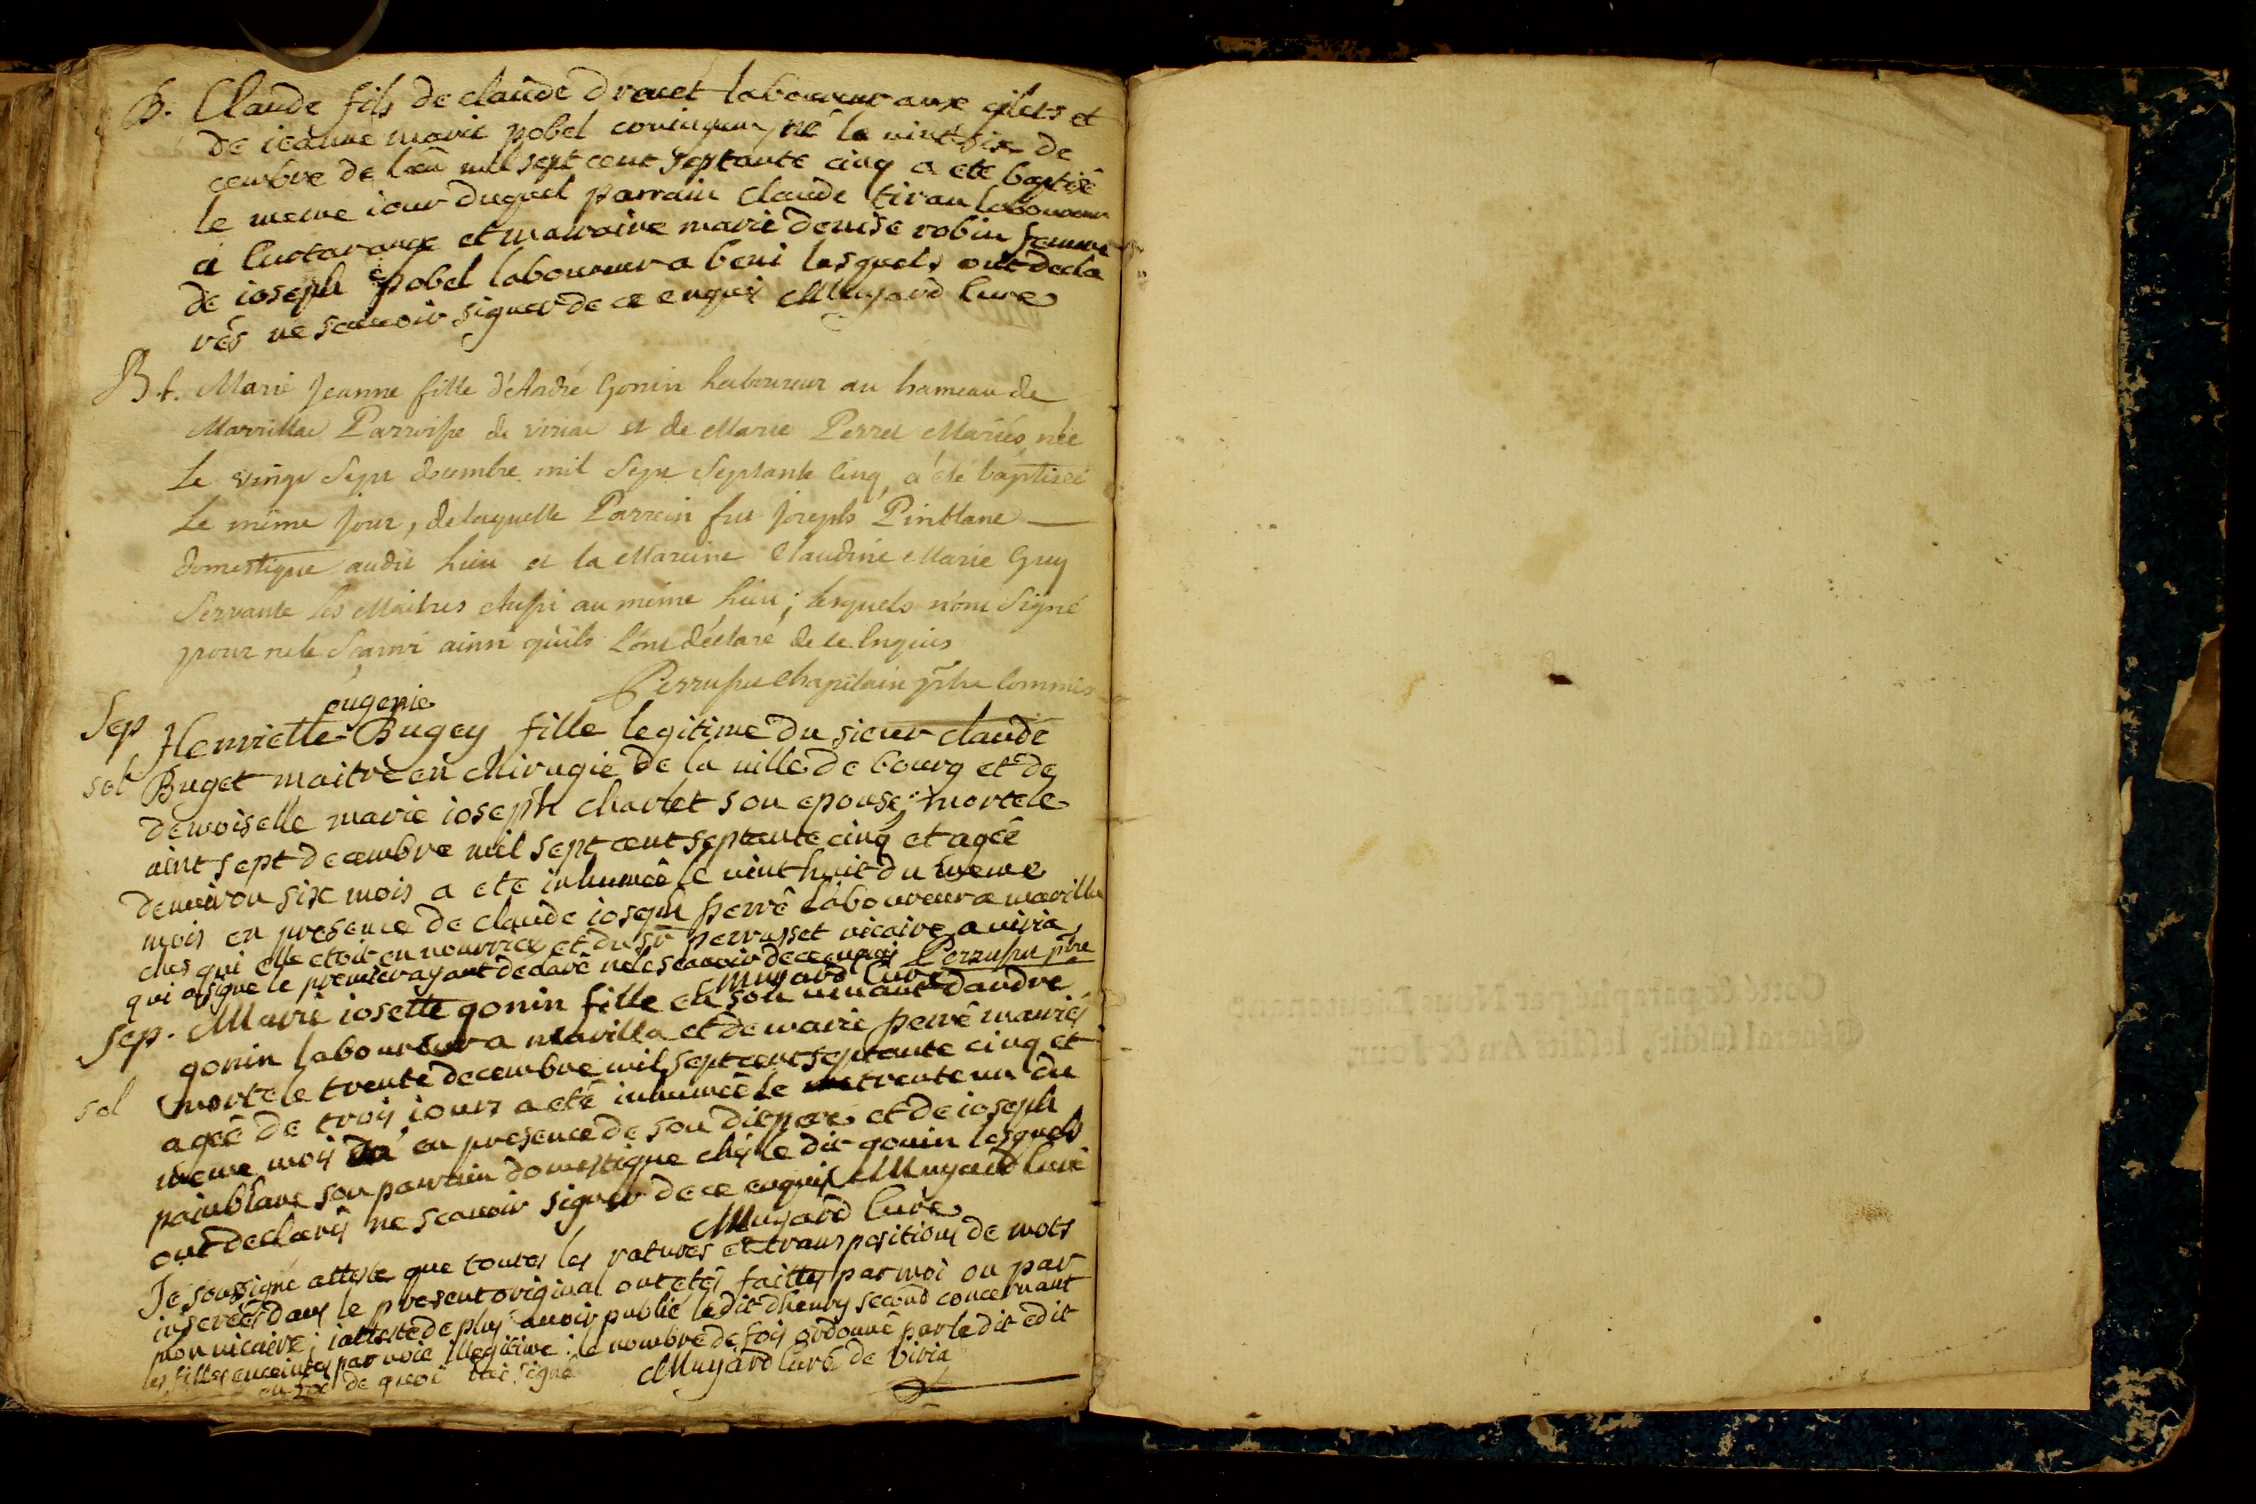 B. Claude fils de claude drevet laboureur aux gilets et
de ieanne marie pobel coniugaux né le vint six de
cembre de lan mil sept cent septante cinq a ete baptisé
le meme iour duquel parrain claude tiran laboureur
a curtarange et marraine marie denise robin femme
de ioseph pobel laboureur a beni lesquels ont decla
rés ne scauoir signer de ce enquis Muyard Cure
B.t. Marie Jeanne fille d'André Gonin Laboureur au hameau de
Marvillac Parroisse de viriac et de Marie Perret Mariés, née
Le vingt Sept decembre mil Sept Septante Cinq, a été baptisée
Le même jour, de laquelle Parrein fut joseph Pinblanc
domestique audit Lieu et la Mareine Claudine Marie Guy
Servante Les Maitres Aussi au même Lieu ; lesquels n'ont Signé
pour ne le Sçavoir ainsi qu'ils L'ont déclaré de ce Enquis
Perrusset Chapelain ptre Commis
eugenie
Sep Henriette Bugey fille legitime du sieur claude
sol Buget maitre en chirugie de la ville de bourg et de
demoiselle marie ioseph charlet son epouse, morte le
vint sept decembre mil sept cent septante cinq et agée
denviron six mois a ete inhumée le vint huit du meme
mois en presence de claude ioseph perré laboureur a marilla
ches qui elle etoit en nourrice et du sr perrusset vicaire a viria
qui a signe le premier ayant declaré ne le scauoir de ce enquis Perrusset ptre
Muyard Cure
Sep. Marie iosette gonin fille en son viuant dandre
gonin laboureur a marilla et de marie perré mariés
sol morte le trente decembre mil sept cent septante cinq et
agée de trois iours a eté inhumée le trente un du
meme mois en presence de son dit pere et de ioseph
painblanc son parrain domestique chés le dit gonin lesquels
ont declarés ne scauoir signer de ce enquis Muyard Curé
Muyard Cure
Je soussigne atteste que toutes les ratures et transpositions de mots
inserées dans le present original ont etés faittes par moi ou par
mon vicaire ; iatteste de plus auoir publié ledit dhenry second concernant
les filles enceintes par voie illegitime : le nombre de fois ordonné par le dit edit
en foi de quoi iai signé Muyard Curé de Viria
Cotté & paraphé par Nous Lieutenant
Général susdit, lesdits An & Jour.